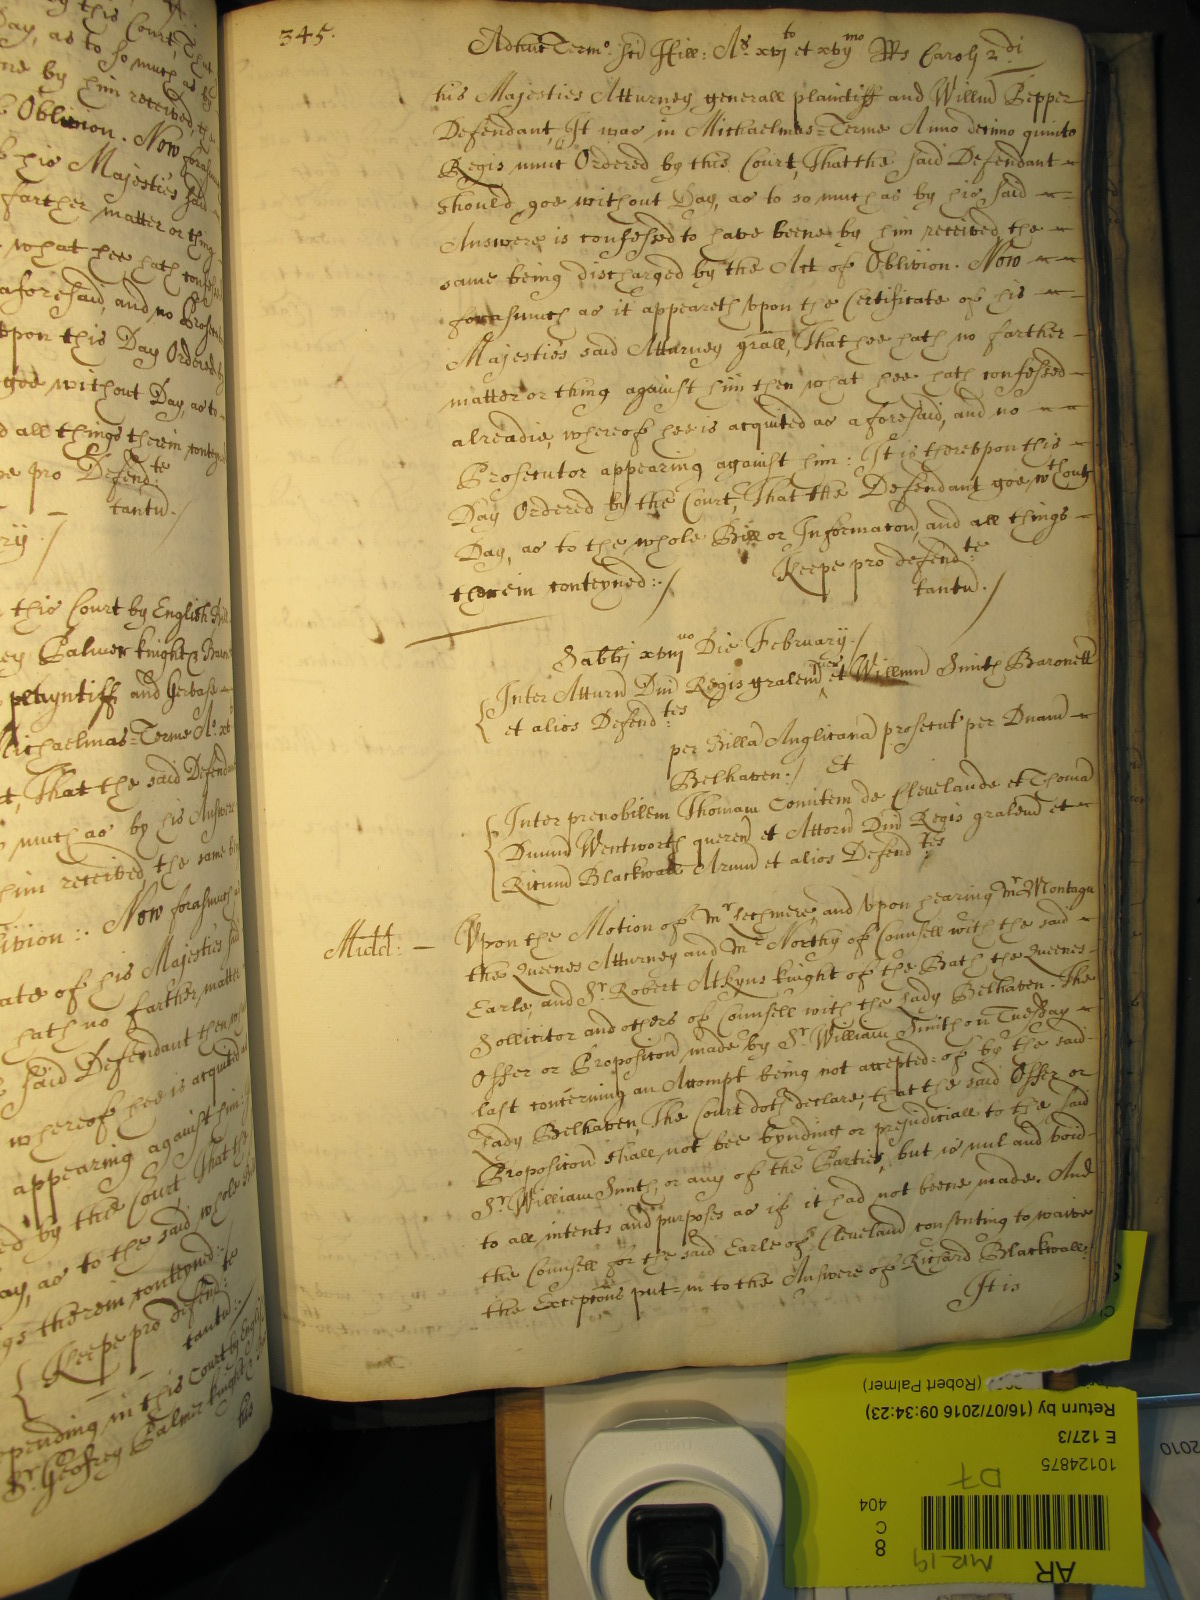 345.
Adhuc Termo. Sci Hill: Ao. xvj to et xvij mo Rs Caroli 2. di
his Majesties Atturney generall plaintiff and Willm Pepper
Defendant, It was in Michaelmas=Terme Anno decimo quinto
Regis nunc Ordered by this Court, That the said Defendant
should goe without Day, as to so much as by his said
Answere is confessed to have beene by him received, the
same being discharged by the Act of Oblivion. Now
forasmuch as it appeareth upon the Certificate of his
Majesties said Atturney gräll, That hee hath no farther
matter or thing against him then what hee hath confessed
alreadie, whereof hee is acquited as aforesaid, and no
Prosecutor appearing against him: It is thereupon this
Day Ordered by the Court, That the Defendant goe without
Day, as to the whole Bill or Informacon, and all things
therein conteyned:./
Keepe pro defend: te
tantu./
Sabbi xviij uo Die February./
Inter Atturn Dni Regis gralem quer et Willum Smith Baronett
et alios Defend: tes
per Billa Anglicana prosecut per Dnam
Belhaven./ Et
Inter prenobilem Thomam Comitem de Clevelande et Thoma
Dnum Wentworth queren et Attorn Dni Regis gralem et
Ricum Blackwall Arum et alios Defend tes
Midd: — Upon the Motion of Mr. Lechmere, and upon hearing Mr. Montagu
the Queenes Atturney and Mr. Northy of Counsell with the said
Earle, and Sr. Robert Atkyns knight of the Bath the Queenes
Sollicitor and others of Counsell with the Lady Belhaven. The
Offer or Proposicon made by Sr. William Smith on Tuesday
last concerning an Attempt being not accepted of by the said
Lady Belhaven, The Court doth declare, that the said Offer or
Proposicon shall not bee bynding or prejudiciall to the said
Sr. William Smith, or any of the Parties, but is nul and void
to all intents and purposes as if it had not beene made. And
the Counsell for the said Earle of Cleveland consenting to waive
the Excepcons put=in to the Answere of Richard Blackwall:
It is
this Court, That
Day, as to so much as
by him received, the
Oblivion. Now foras
his Majesties said
farther matter or thing
what hee hath confes
aforesaid, and no Prosecu
upon this Day Ordered
goe without Day, as to
all things therein conteyn
pro Defend: te
tantu./
this Court by English Bill
Palmer knight & Baro
playntiff and Gervase
Michaelmas=Terme Ao. xv
That the said Defend
much as by his Answere
him received, the same
Now forasmuch as
ate of his Majesties said
hath no farther matter
said Defendant then
whereof hee is acquited
appearing against him:
by the Court, That the
as to the said whole
therein conteyned:./
Keepe pro defend: te
tantu:./
depending in this Court by Engli
Sr. Geofrey Palmer knight &
his
(Robert Palmer)
Return by (16/07/2016 09:34:23)
E 127/3
10124875
D7
404
C
8
AR
MR 19
2010